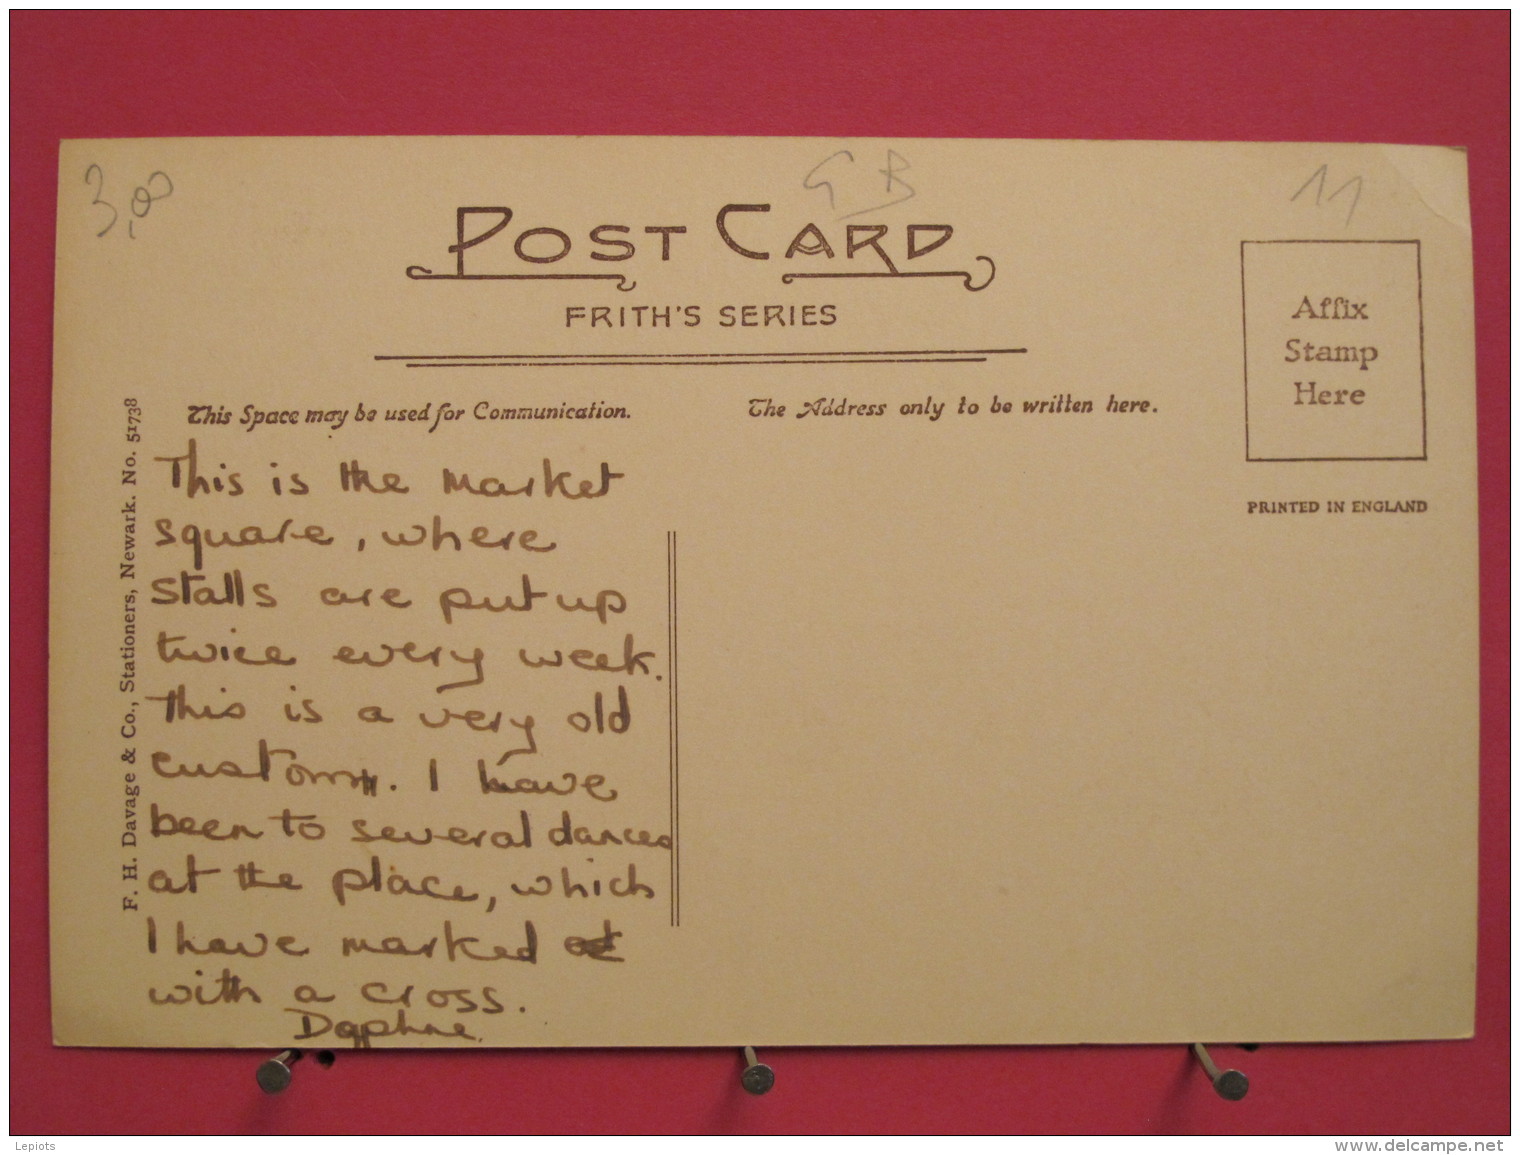 3,00
GB
11
POST CARD
FRITH'S SERIES
Affix
Stamp
Here
PRINTED IN ENGLAND
This Space may be used for Communication.
The Address only to be written here.
F. H. Davage & Co., Stationers, Newark. No. 51738
This is the market
square, where
stalls are put up
twice every week.
This is a very old
custom. I have
been to several dances
at the place, which
I have marked
with a cross.
Daphne.
Lepiots
www.delcampe.net